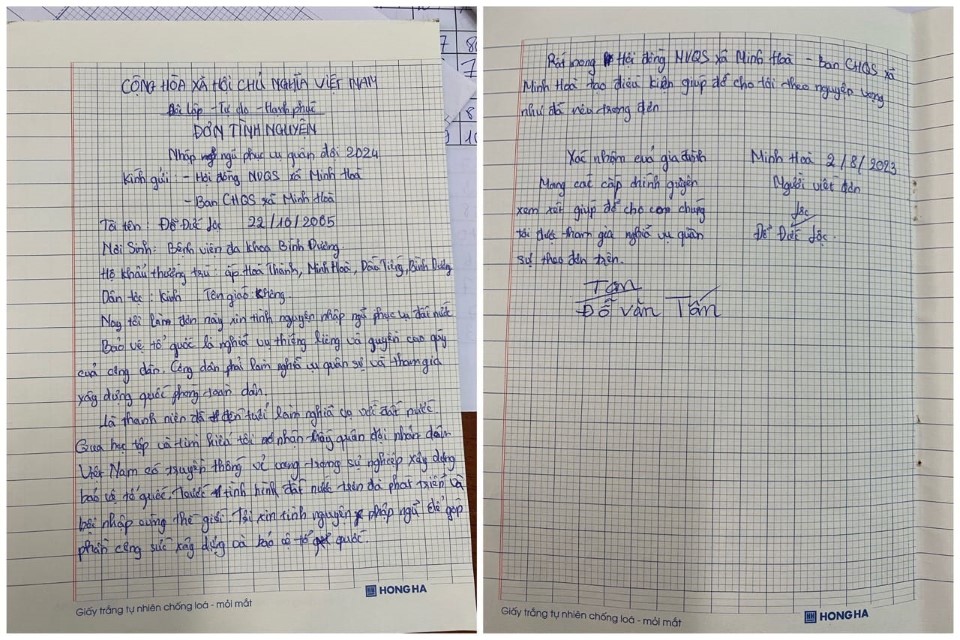 CỘNG HÒA XÃ HỘI CHỦ NGHĨA VIỆT NAM
Độc lập - Tự do - Hạnh phúc
ĐƠN TÌNH NGUYỆN
Nhập ngũ phục vụ quân đội 2024
Kính gửi: - Hội đồng NVQS xã Minh Hoà
- Ban CHQS xã Minh Hoà
Tôi tên: Đỗ Đức Lộc 22/10/2005
Nơi Sinh: Bệnh viện đa khoa Bình Dương
Hộ khẩu thường trú: ấp Hoà Thành, Minh Hoà, Dầu Tiếng, Bình Dương
Dân tộc: Kinh Tôn giáo: Không
Nay tôi làm đơn này xin tình nguyện nhập ngũ phục vụ đất nước
Bảo vệ tổ quốc là nghĩa vụ thiêng liêng và quyền cao quý
cuả công dân. Công dân phải làm nghĩa vụ quân sự và tham gia
xây dựng quốc phòng toàn dân.
Là thanh niên đã đến tuổi làm nghĩa vụ với đất nước.
Qua học tập và tìm hiểu tôi nhận thấy quân đội nhân dân
Việt Nam có truyền thống vẻ vang trong sự nghiệp xây dựng
bảo vệ tổ quốc. Trước tình hình đất nước trên đà phát triển và
hội nhập cùng thế giới. Tôi xin tình nguyện nhập ngũ để góp
phần công sức xây dựng và bảo vệ tổ quốc.
Giấy trắng tự nhiên chống loá - mỏi mắt
HONG HA
Rất mong Hội đồng NVQS xã Minh Hoà - Ban CHQS xã
Minh Hoà tạo điều kiện giúp đỡ cho tôi theo nguyện vọng
như đã nêu trong đơn
Xác nhận cuả gia đình
Mong các cấp chính quyền
xem xét giúp đỡ cho con chúng
tôi được tham gia nghĩa vụ quân
sự theo đơn trên.
Tấn
Đỗ Văn Tấn
Minh Hoà 2/8/2023
Người viết đơn
Lộc
Đỗ Đức Lộc
Giấy trắng tự nhiên chống loá - mỏi mắt
HONG HA